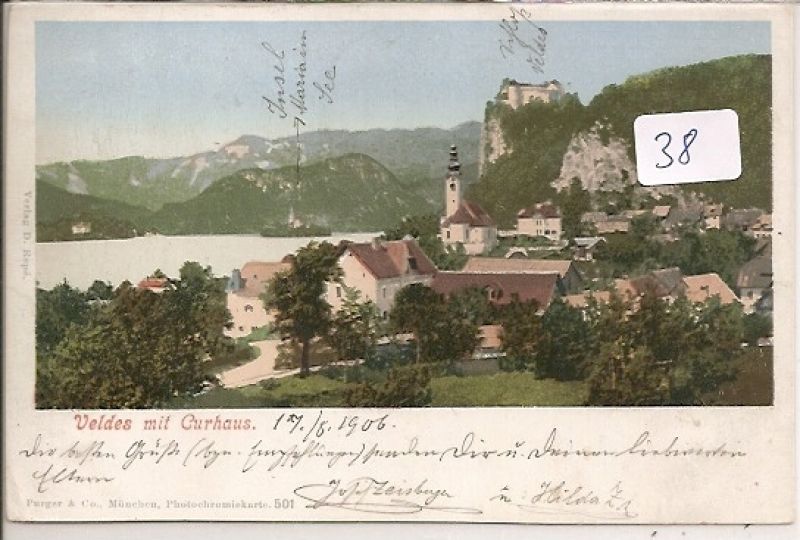 Insel
Maria im
See
Schloß
Veldes
38
Verlag D. Repé.
Veldes mit Curhaus. 17./8. 1906.
Die besten Grüße (bzw. Empfehlungen) senden Dir u. Deinen liebwerten
Eltern
u. Hilda Z
Purger & Co., München, Photochromiekarte. 501